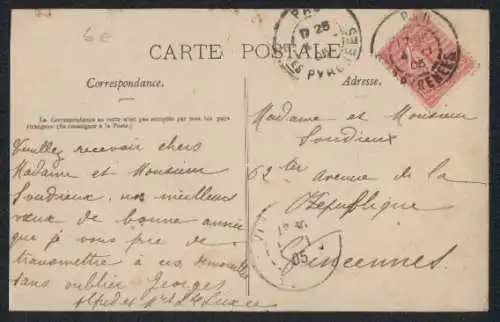 6€
CARTE POSTALE
Correspondance.
Adresse.
La Correspondance au recto n'est pas acceptée par tous les pays
étrangers (Se renseigner à la Poste)
Veuillez recevoir chers
Madame et Monsieur
Soudieux, nos meilleurs
vœux de bonne année
que je vous prie de
transmettre à ces demoiselles
sans oublier Georges
Alfred et
Madame et Monsieur
Soudieux
62 ter avenue de la
République
Vincennes
PYRENEES
05